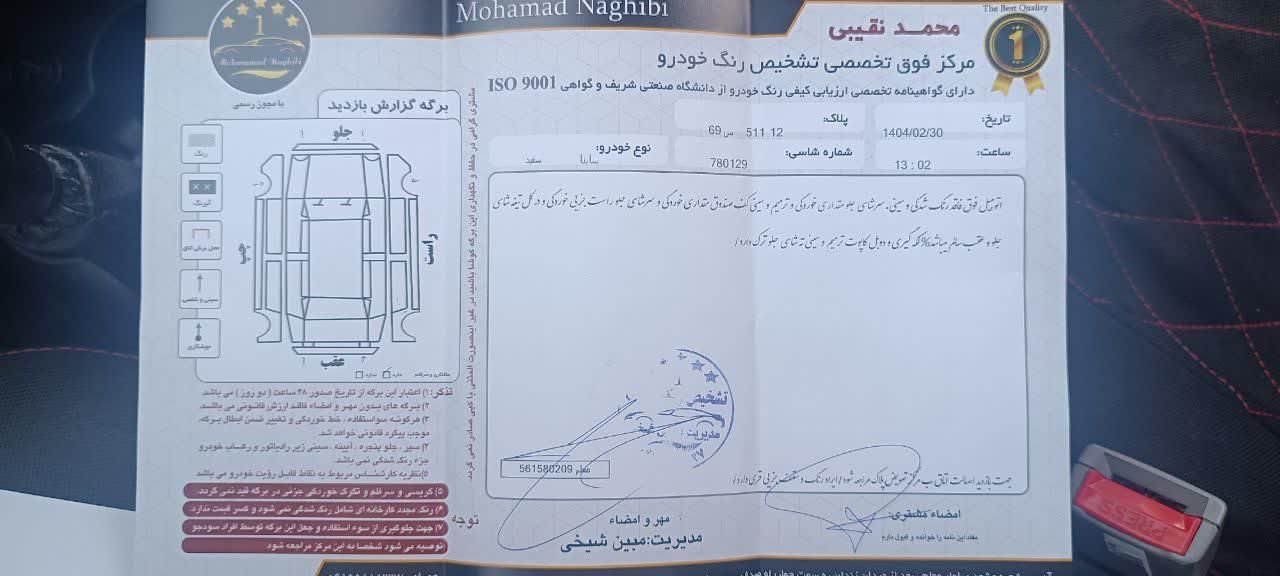 Mohamad Naghibi
The Best Quality
1
محمـد نقیبی
مرکز فوق تخصصی تشخیص رنگ خودرو
دارای گواهینامه تخصصی ارزیابی کیفی رنگ خودرو از دانشگاه صنعتی شریف و گواهی ISO 9001
تاریخ: 1404/02/30
پلاک: 12 511 س 69
ساعت: 13 : 02
شماره شاسی: 780129
نوع خودرو: ساینا سفید
اتومبیل فوق فاقد رنگ شدگی و سینی. سرشاسی جلو مقداری خوردگی و ترمیم و سینی کف صندوق مقداری خوردگی و سرشاسی جلو راست جزئی خوردگی و در کل تیغه شاسی
جلو و عقب سالم میباشد% لکه گیری و دوبل کاپوت ترمیم و سینی ته شاسی جلو ترک دارد/
تشخیص
مدیریت
معلم 561580209
جهت بازدید اصالت اتاق ب مرکز تعویض پلاک مراجعه شود/ ایراد رنگ و سقف جزئی قری دارد/
امضاء مشتری:
مفاد این نامه را خوانده و قبول دارم
مهر و امضاء
مدیریت: مبین شیخی
1
Mohammad Naghibi
با مجوز رسمی
برگه گزارش بازدید
جلو
چپ
راست
عقب
رنگ
آبرنگ
محل برش اتاق
سینی و شاسی
جوشکاری
دارد
ندارد
مشتری گرامی در حفظ و نگهداری این برگه کوشا باشید در غیر اینصورت المثنی یا کپی صادر نمی گردد.
تذکر: ۱) اعتبار این برگه از تاریخ صدور ۴۸ ساعت ( دو روز ) می باشد.
۲) برگه های بدون مهر و امضاء فاقد ارزش قانونی می باشد.
۳) هرگونه سوء استفاده ، خط خوردگی و تغییر ضمن ابطال برگه،
موجب پیگرد قانونی خواهد شد.
۴) سپر ، جلو پنجره ، آیینه ، سینی زیر رادیاتور و رکاب خودرو
جزء رنگ شدگی نمی باشد.
۵) نظریه کارشناس مربوط به نقاط قابل رؤیت خودرو می باشد
توجه
۵) گریسی و سرقلم و تکرک خوردگی جزئی در برگه قید نمی گردد.
۶) رنگ مجدد کارخانه ای شامل رنگ شدگی نمی شود و کسر قیمت ندارد.
۷) جهت جلوگیری از سوء استفاده و جعل این برگه توسط افراد سودجو
توصیه می شود شخصا به این مرکز مراجعه شود
PRESS